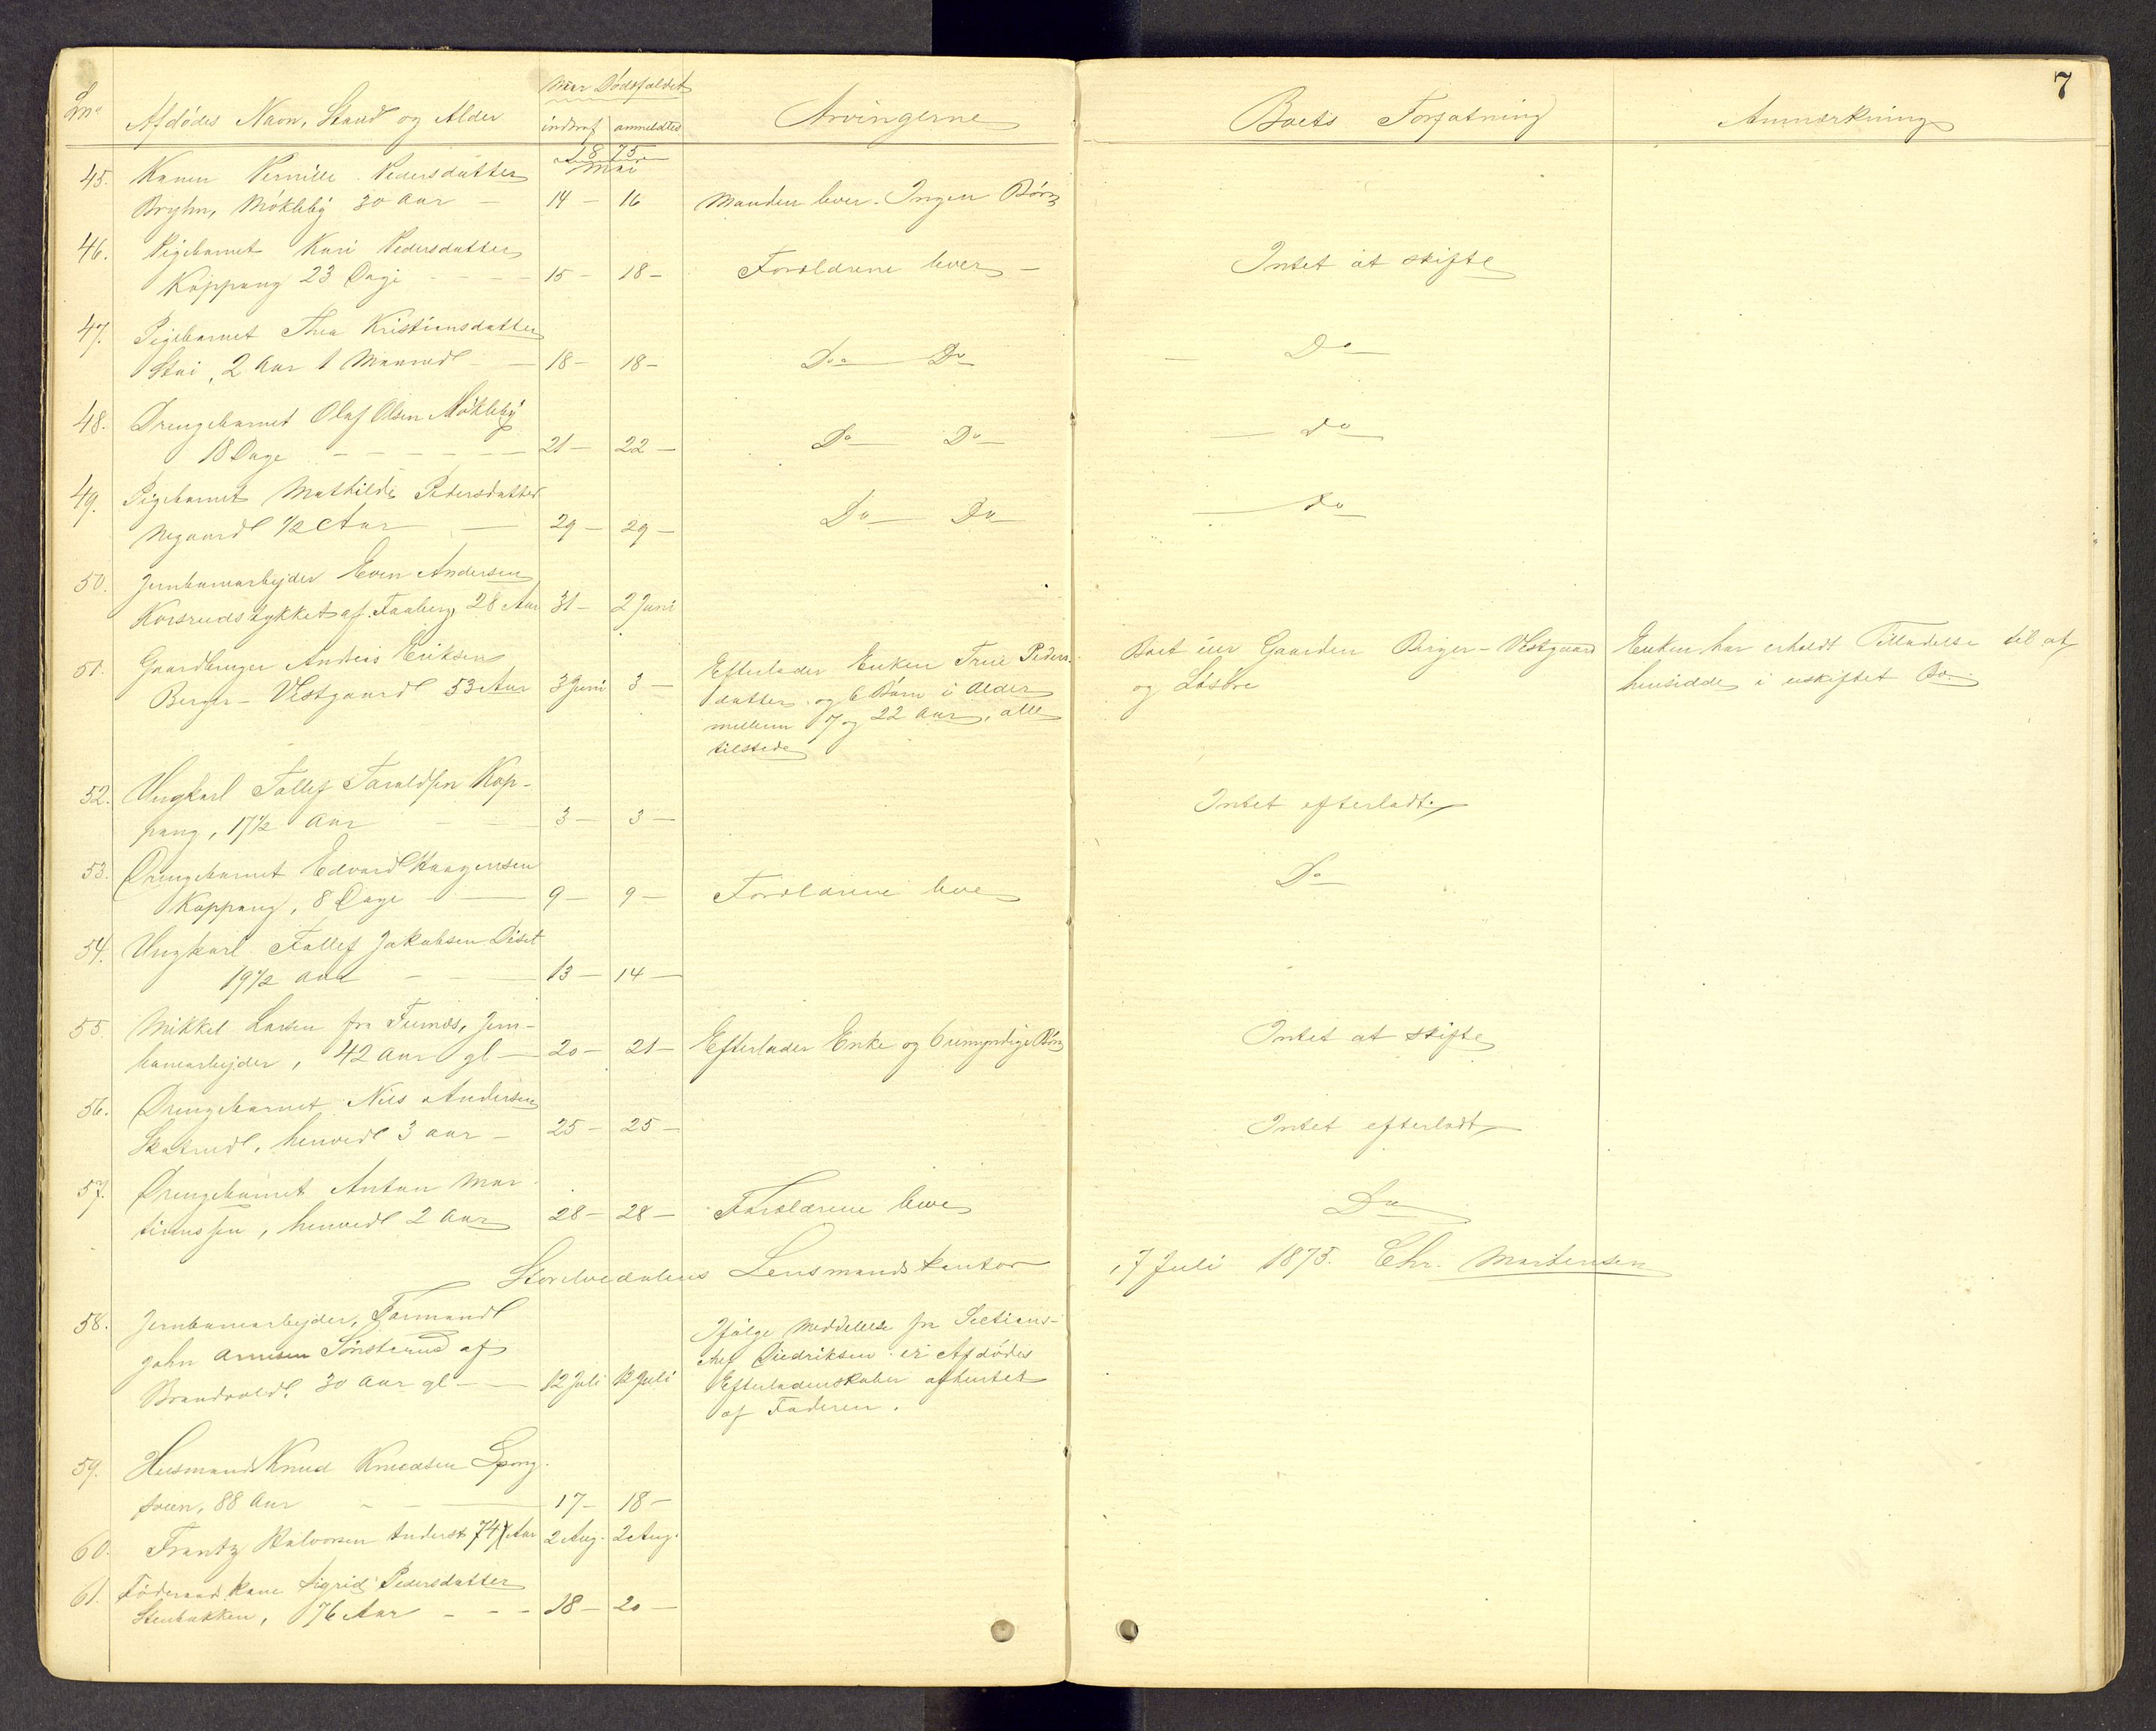 7
Lno Afdödes Navn, Stand og Alder Naar Dödsfaldet indtraf anmeldtes Arvingerne Boets Forfatning Anmærkning
1875
Mai
45. Konen Pernille Pedersdatter
Bryhn, Mökleby 30 Aar — 14 — 16 Manden lever. Ingen Börn
46. Pigebarnet Kari Pedersdatter
Koppang 23 Dage — 15 — 18 — Forældrene lever — Intet at skifte
47. Pigebarnet Thea Kristiansdatter
Stai, 2 Aar 1 Maaned — 18 — 18 — Do — Do — Do —
48. Drengebarnet Olaf Olsen Mökleby
18 Dage — 21 — 22 — Do — Do — Do —
49. Pigebarnet Mathilde Pedersdatter
Negaard 1/2 Aar — 29 — 29 — Do — Do — Do —
50. Jernbanearbejder Even Andersen
Korsrudstykket af Faaberg, 28 Aar 31 — 2 Juni
51. Gaardbruger Anders Eriksen
Berger-Vestgaard 53 Aar 3 Juni 3 —
Efterlader Enken Trine Peders-
datter og 6 Börn i Alder
mellem 7 og 22 Aar, alle
tilstede
Boet eier Gaarden Berger-Vestgaard
og Lösöre
Enken har erholdt Tilladelse til at
hensidde i uskiftet Bo.
52. Ungkarl Tollef Taraldsen Kop-
pang, 17 1/2 Aar — 3 — 3 — Intet efterladt
53. Drengebarnet Edvard Haagensen
Koppang, 8 Dage — 9 — 9 — Forældrene leve Do
54. Ungkarl Tollef Jakobsen Diset
19 1/2 Aar — 13 — 14 —
55. Mikkel Larsen fra Furnæs, Jern-
banearbejder, 42 Aar gl — 20 — 21 — Efterlader Enke og 6 umyndige Börn Intet at skifte
56. Drengebarnet Nils Andersen
Skatrud, henved 3 Aar — 25 — 25 — Intet efterladt
57. Drengebarnet Anton Mar-
tinussen, henved 2 Aar 28 — 28 — Forældrene leve Do
Storelvedalens Lensmandskontor, 7 Juli 1875. Chr. Mortensen
58. Jernbanearbejder, Formand
John Arnesen Sönsterud af
Brandvold, 30 Aar gl — 12 Juli 12 Juli
Ifölge Meddelelse fra Sections-
chef Diedriksen er Afdödes
Efterladenskaber afhentet
af Faderen.
59. Husmand Knud Knudsen Spong-
sveen, 88 Aar — 17 — 18 —
60. Frantz Halvorsen 74 Aar 2 Aug. 2 Aug.
61. Föderaadskone Sigrid Pedersdatter
Stenbakken, 76 Aar — 18 — 20 —